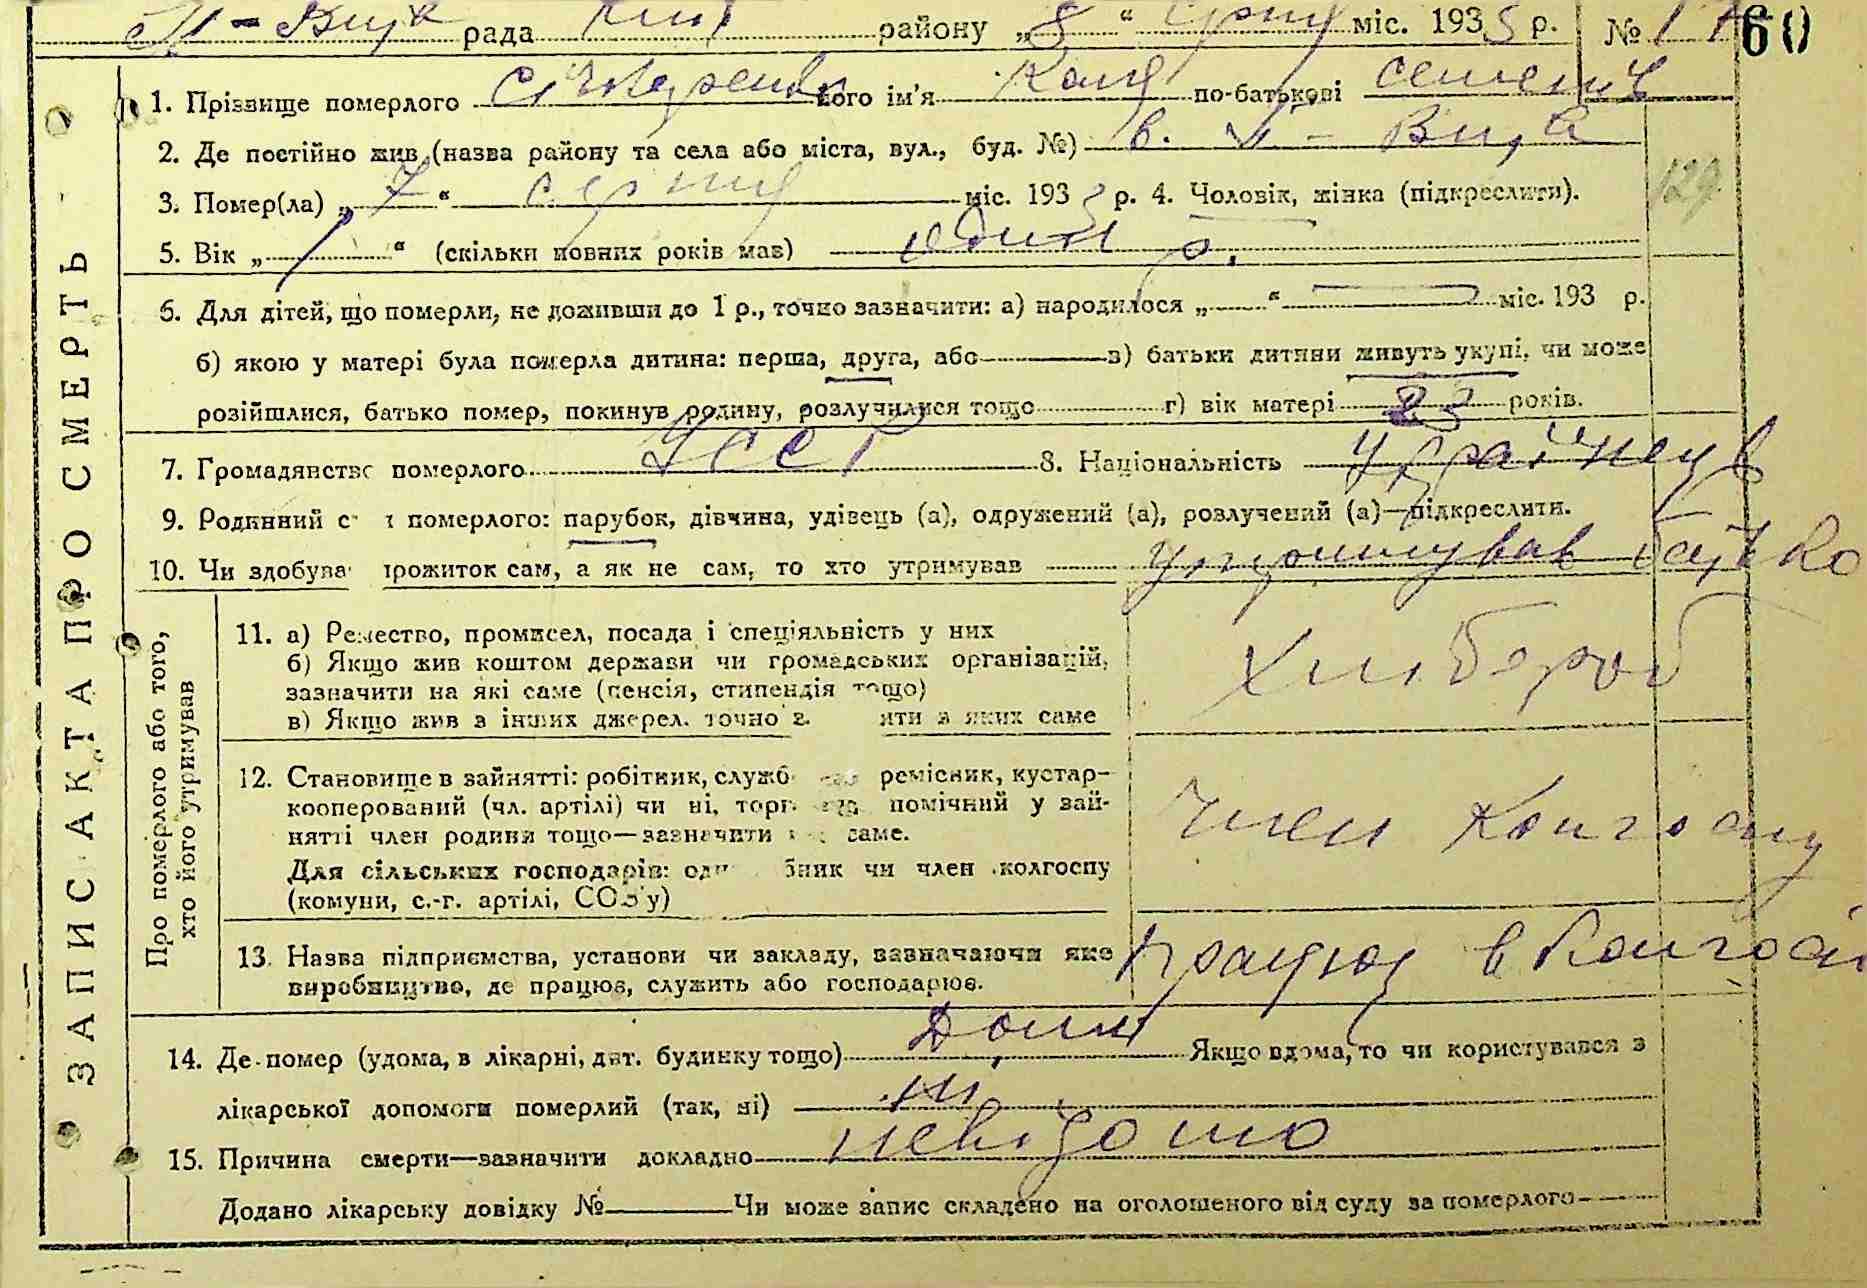 рада району „8“ серпня міс. 1933 р. № 60
1. Прізвище померлого його ім'я Коля по-батькові
2. Де постійно жив (назва району та села або міста, вул., буд. №) в.
129
3. Помер(ла) „7“ серпня міс. 1933 р. 4. Чоловік, жінка (підкреслити).
5. Вік „1“ (скільки повних років мав) один р.
6. Для дітей, що померли, не доживши до 1 р., точно зазначити: а) народилося „ “ міс. 193 р.
б) якою у матері була померла дитина: перша, друга, або в) батьки дитини живуть укупі, чи може
розійшлися, батько помер, покинув родину, розлучилися тощо г) вік матері 23 років.
7. Громадянство померлого УССР 8. Національність Украйнець
9. Родинний померлого: парубок, дівчина, удівець (а), одружений (а), розлучений (а)—підкреслити.
10. Чи здобував прожиток сам, а як не сам, то хто утримував утримував батько
ЗАПИС АКТА ПРО СМЕРТЬ
Про померлого або того, хто його утримував
11. а) Ремество, промисел, посада і спеціяльність у них
б) Якщо жив коштом держави чи громадських організацій,
зазначити на які саме (пенсія, стипендія тощо)
в) Якщо жив з інших джерел, точно з яких саме
Хлибороб
12. Становище в зайнятті: робітник, служб ремісник, кустар-
кооперований (чл. артілі) чи ні, торг помічний у зай-
нятті член родини тощо—зазначити саме.
Для сільських господарів: одн чи член колгоспу
(комуни, с.-г. артілі, СОЗ'у)
Член Колгоспу
13. Назва підприємства, установи чи закладу, зазначаючи яке
виробництво, де працює, служить або господарює.
працює в Колгоспі
14. Де помер (удома, в лікарні, дит. будинку тощо) Дома Якщо вдома, то чи користувався з
лікарської допомоги померлий (так, ні) ни
15. Причина смерти—зазначити докладно невідомо
Додано лікарську довідку № Чи може запис складено на оголошеного від суду за померлого